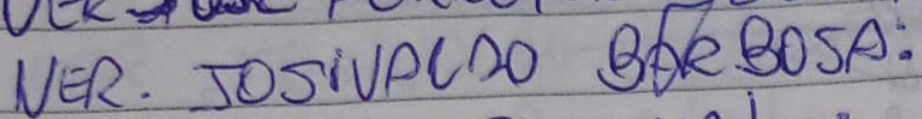 VER. JOSIVALDO BARBOSA: